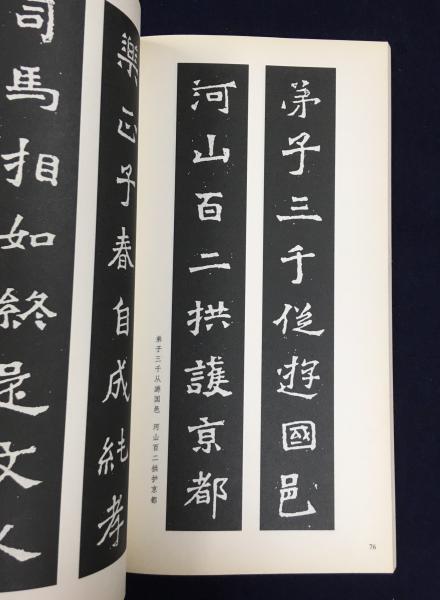 弟子三千從遊國邑
河山百二拱護京都
弟子三千从游国邑 河山百二拱护京都
76
樂正子春自成純孝
司馬相如終是文人